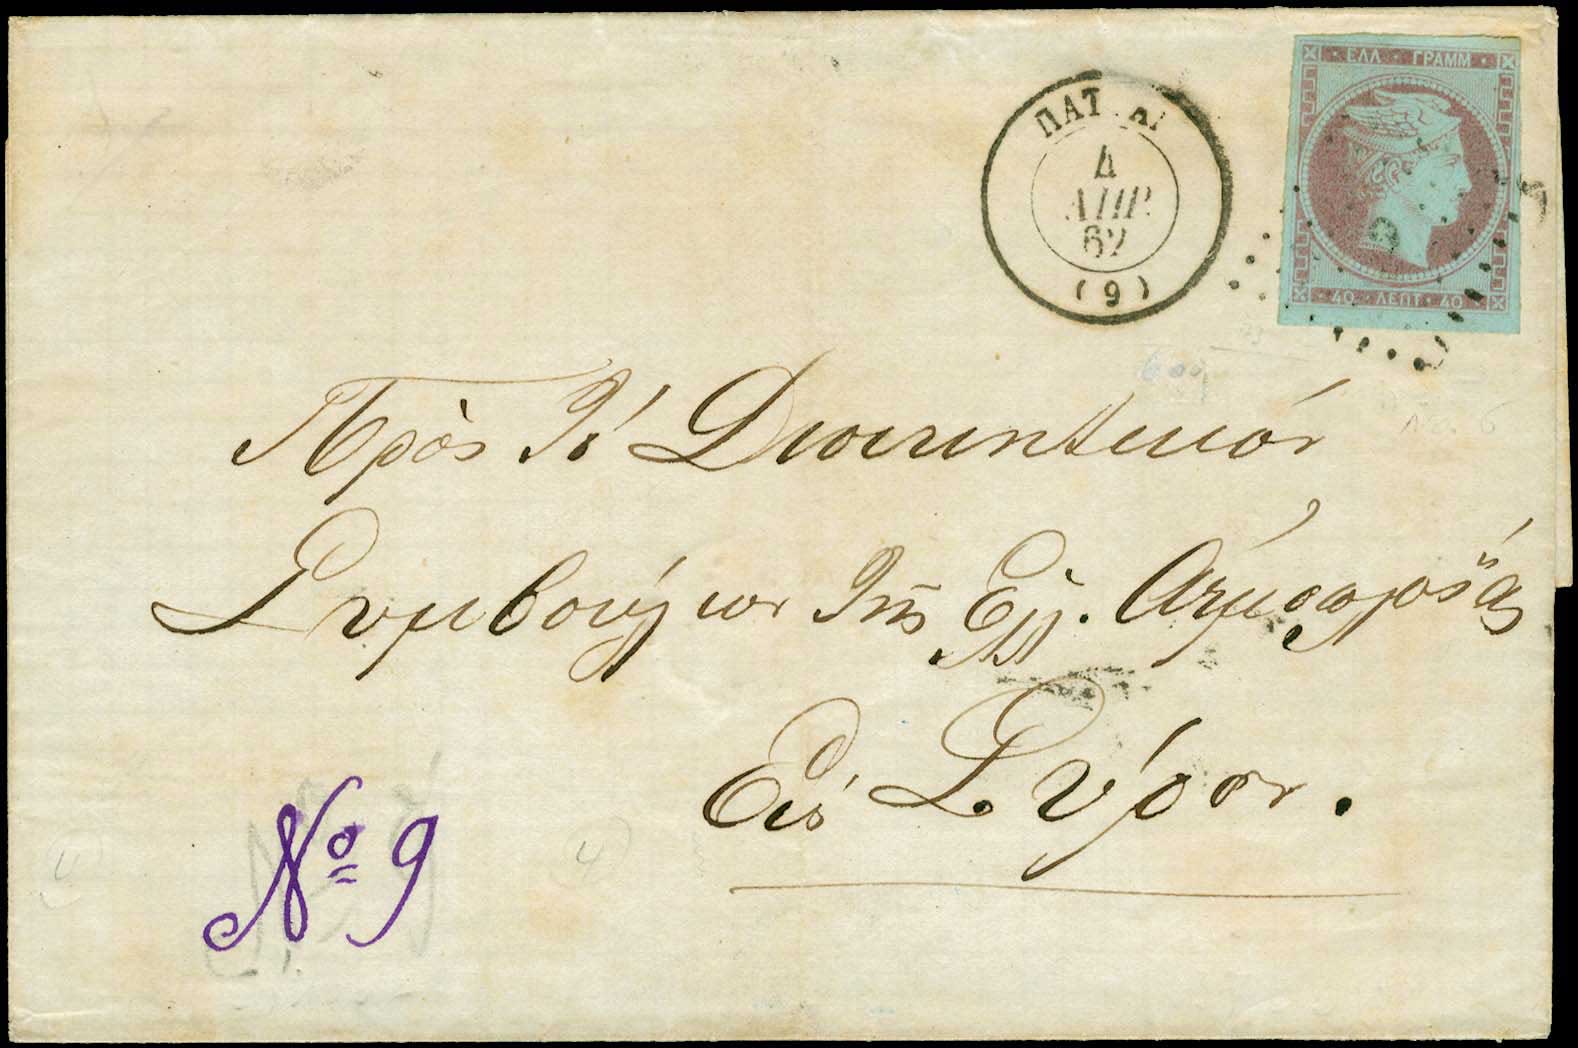 ΕΛΛ · ΓΡΑΜΜ
40 · ΛΕΠΤ · 40
ΠΑΤ ΑΙ
4
ΑΠΡ.
62
(9)
9
600
No. 6
Πρὸς τὸ Διοικητικόν
Συμβούλιον τῆς Ἑλλ. Ἀτμοπλοΐας
Εἰς Σύρον.
Nº 9
4
4